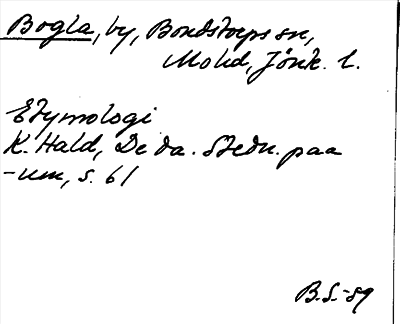 Bogla, by, Bondstorps sn,
Mohd, Jönk. l.
Etymologi
K. Hald, De da. Stedn. paa
-um, s. 61
B.S.-89